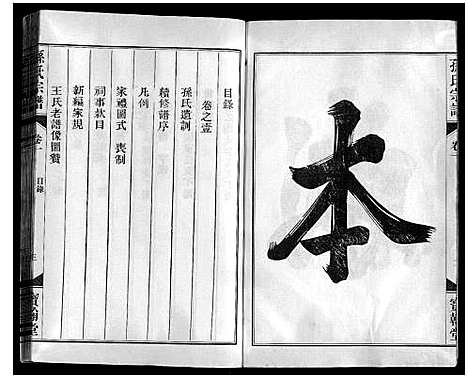 孫氏宗譜
卷一
寶翰堂
本
目錄
卷之壹
孫氏遺訓
續修譜序
凡例
家禮圖式 喪制
祠事款目
新編家規
王氏老譜像圖贊
孫氏宗譜
卷一
目錄
寶翰堂